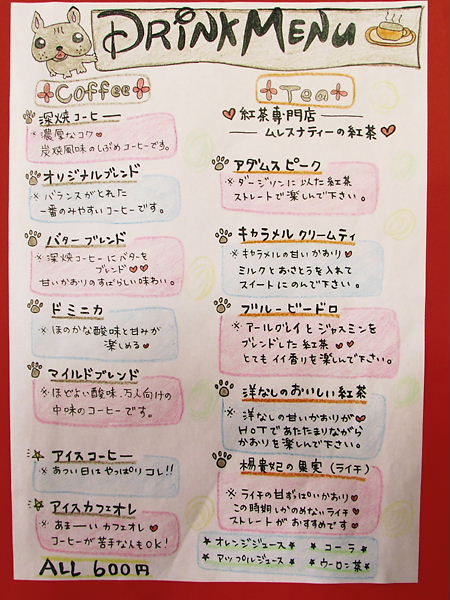 DRINK MENU
Coffee
深焼コーヒー
※濃厚なコク♥
炭焼風味のしぶめコーヒーです。
オリジナルブレンド
※バランスがとれた
一番のみやすいコーヒーです。
バターブレンド
※深焼コーヒーにバターを
ブレンド♥♥
甘いかおりのすばらしい味わい。
ドミニカ
※ほのかな酸味と甘みが
楽しめる♥
マイルドブレンド
※ほどよい酸味、万人向けの
中味のコーヒーです。
アイスコーヒー
※あつい日はやっぱりコレ!!
アイスカフェオレ
※あまーいカフェオレ♥
コーヒーが苦手な人もOK!
ALL 600円
Tea
♥紅茶専門店
ムレスナティーの紅茶♥
アダムスピーク
※ダージリンに以た紅茶
ストレートで楽しんで下さい。
キャラメルクリームティ
※キャラメルの甘いかおり♥
ミルクとおさとうを入れて
スイートにのんで下さい。
ブルービードロ
※アールグレイとジャスミンを
ブレンドした紅茶♥♥
とてもイイ香りを楽しんで下さい。
洋なしのおいしい紅茶
※洋なしの甘いかおりが♥
HOTであたたまりながら
かおりを楽しんで下さい。
楊貴妃の果実(ライチ)
※ライチの甘ずっぱいかおり♥
この時期しかのめないライチ♥
ストレートがおすすめです♥
★オレンジジュース★ ★コーラ★
★アップルジュース★ ★ウーロン茶★